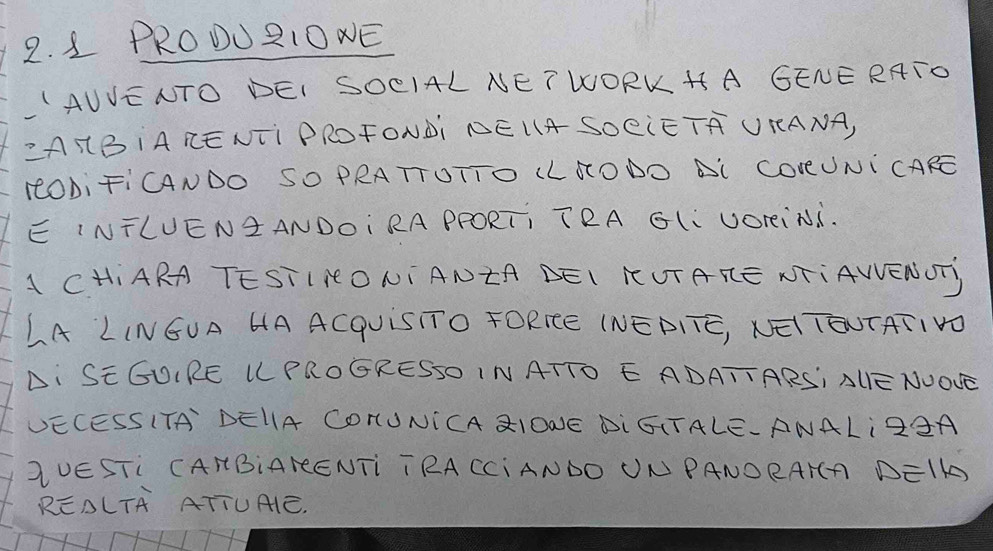 2.1 PRODUZIONE
L'AVVENTO DEI SOCIAL NETWORK HA GENERATO
CAMBIAMENTI PROFONDI NELLA SOCIETÀ UMANA,
MODIFICANDO SOPRATTUTTO IL MODO DI COMUNICARE
E INFLUENZANDO i RAPPORTI TRA GLI UOMINI.
A CHIARA TESTIMONIANZA DEI MUTAMENTI AVVENUTI,
LA LINGUA HA ACQUISITO FORME INEDITE, NEL TENTATIVO
DI SEGUIRE IL PROGRESSO IN ATTO E ADATTARSI ALLE NUOVE
NECESSITÀ DELLA COMUNICAZIONE DIGITALE. ANALIZZA
QUESTI CAMBIAMENTI TRACCIANDO UN PANORAMA DELLA
REALTÀ ATTUALE.